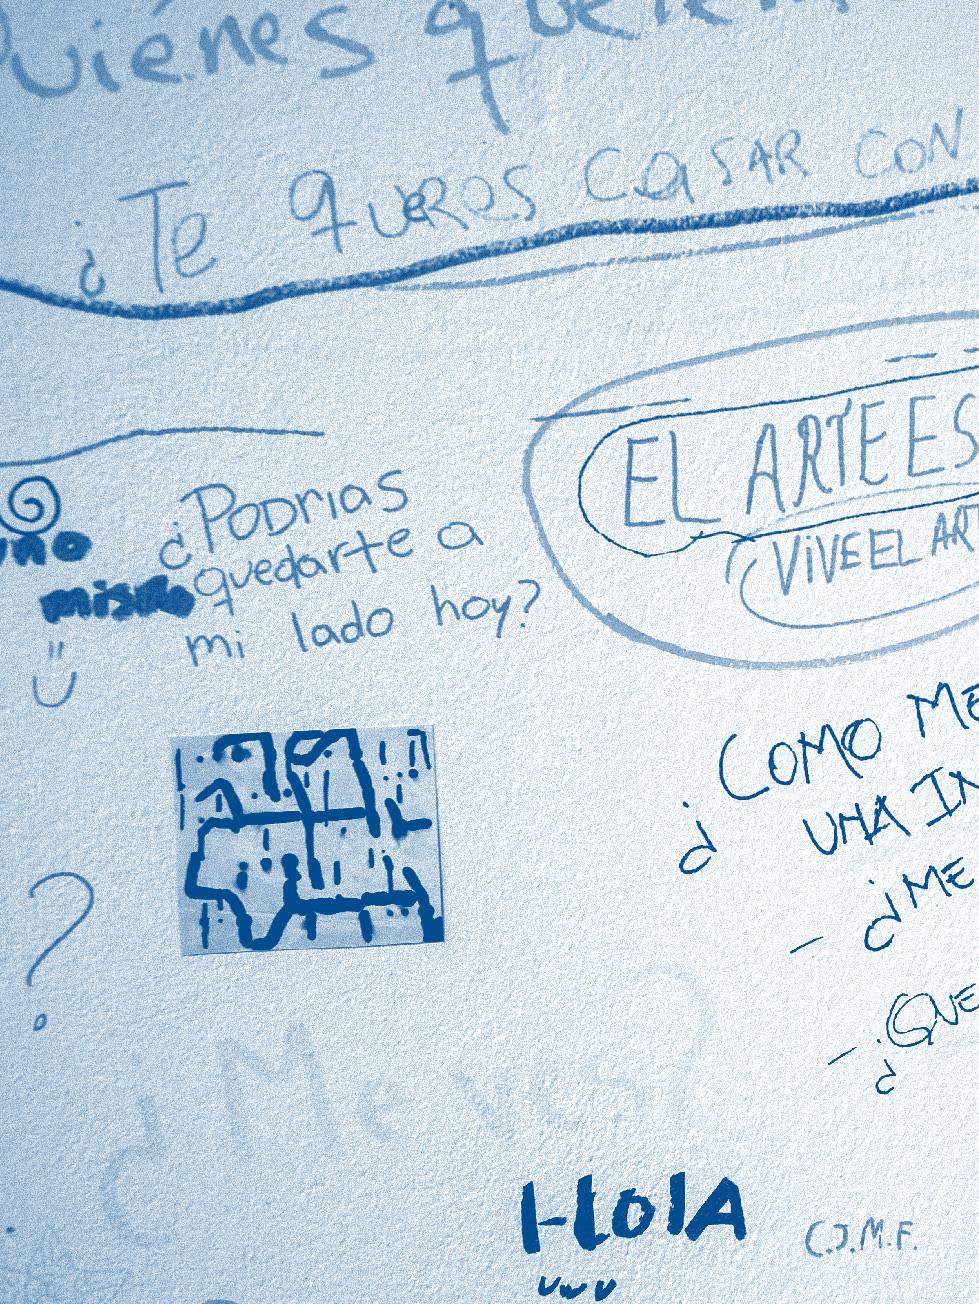 Quiénes
¿Te queres casar con
EL ARTE ES
VIVE EL ART
uno
mismo
¿Podrias
quedarte a
mi lado hoy?
¿COMO ME
UNA IN
- ¿ME
- ¿QUE
?
¿Me ves?
HolA
UwU
C.J.M.F.